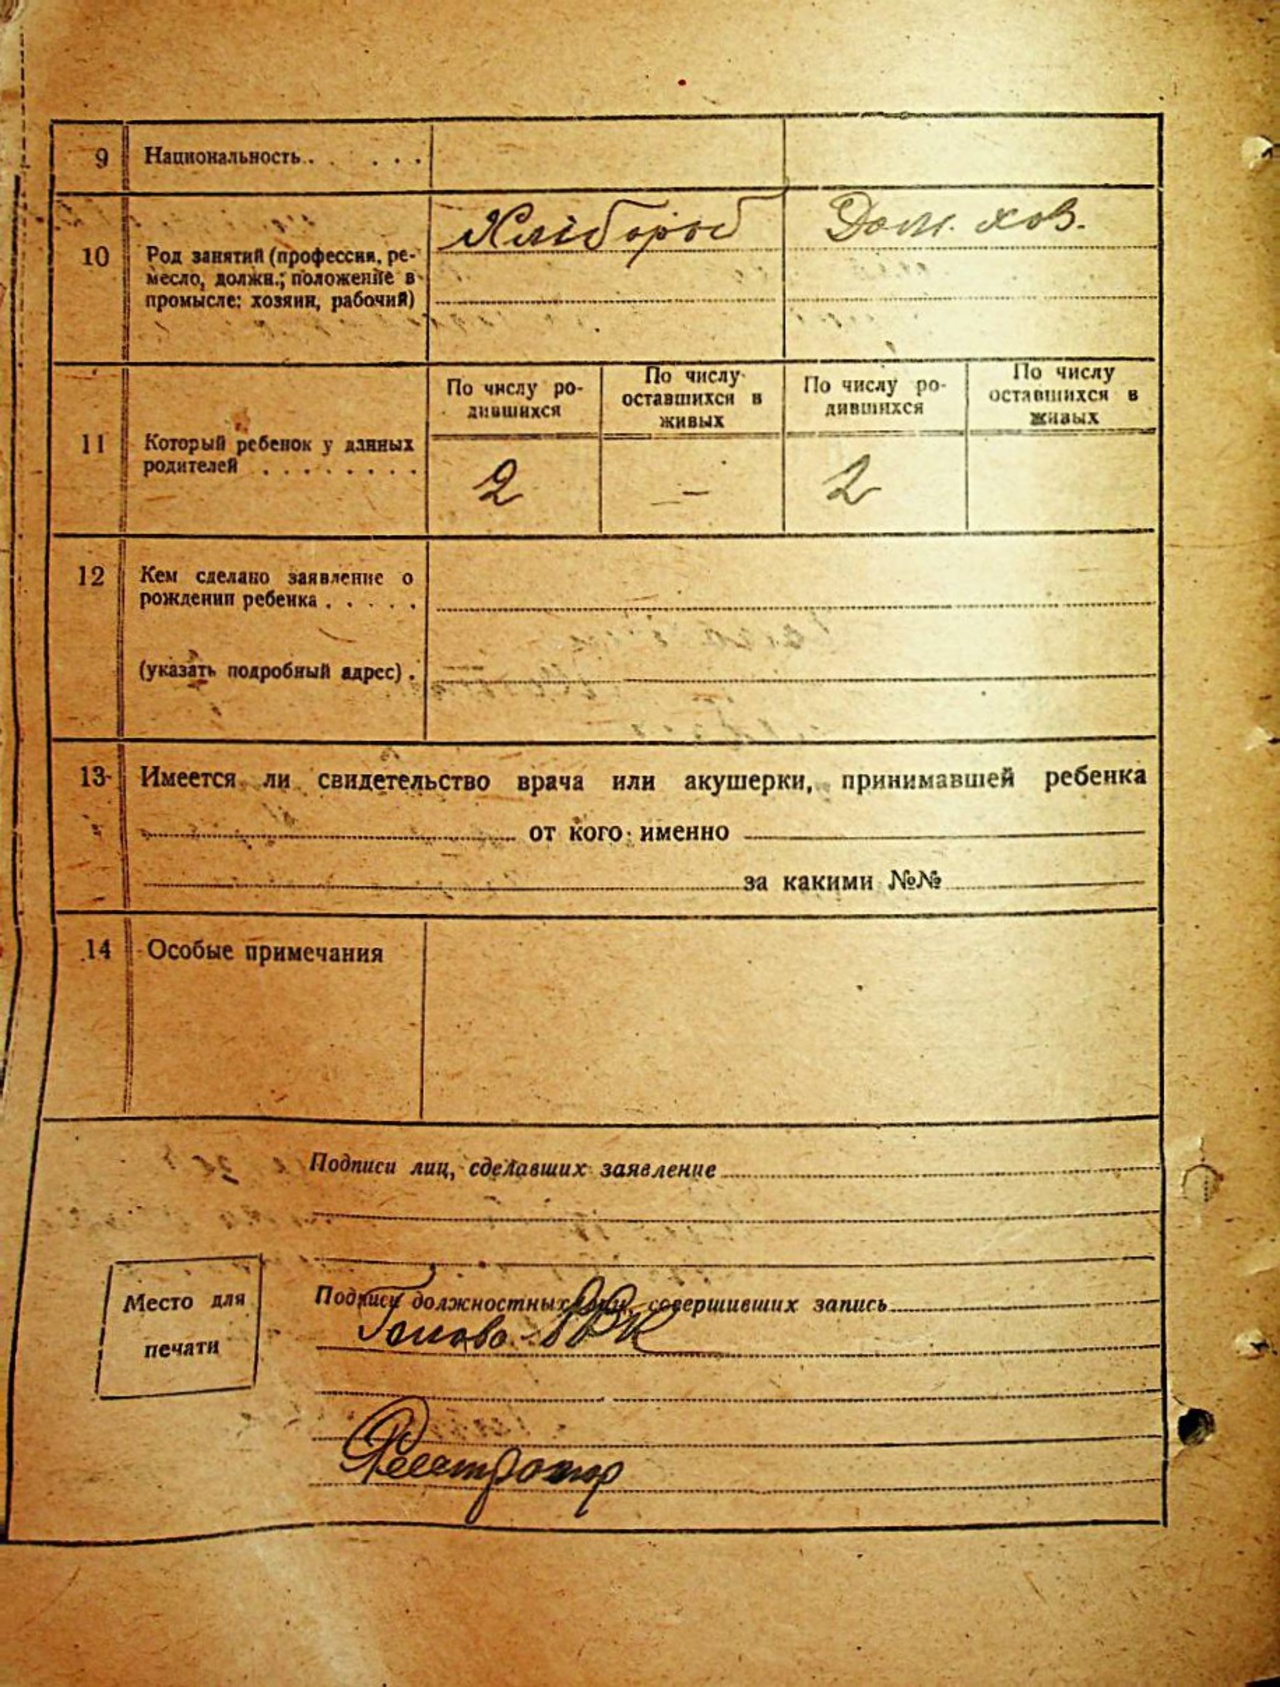 9 Национальность. . . . . .
10 Род занятий (профессия, ре-
месло, должн.; положение в
промысле: хозяин, рабочий)
Хлібороб
Дом. хов.
11 Который ребенок у данных
родителей . . . . . . . .
По числу ро-
дившихся
По числу
оставшихся в
живых
По числу ро-
дившихся
По числу
оставшихся в
живых
2 – 2
12 Кем сделано заявление о
рождении ребенка . . . . .
(указать подробный адрес) .
13 Имеется ли свидетельство врача или акушерки, принимавшей ребенка
от кого именно
за какими №№
14 Особые примечания
Подписи лиц, сделавших заявление
Место для
печати
Подписи должностных лиц, совершивших запись
Голова